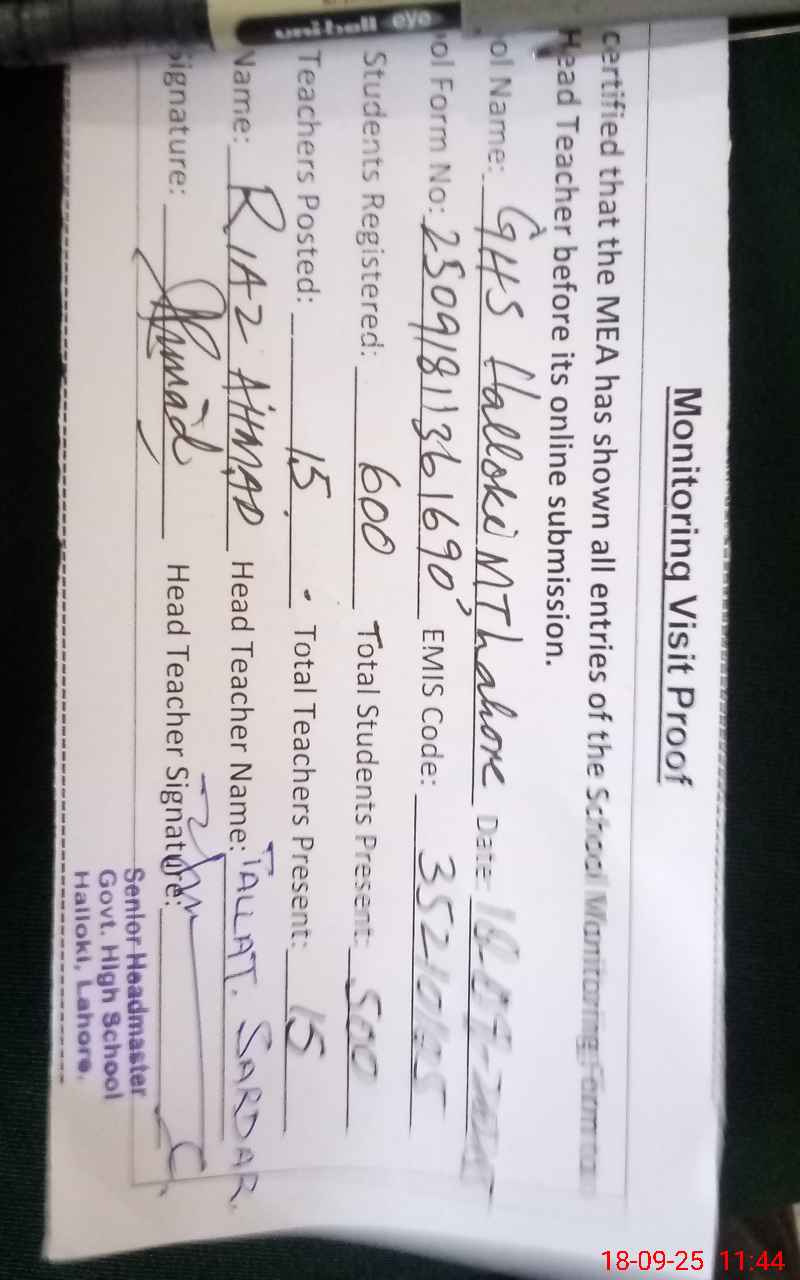 uniball eye
Monitoring Visit Proof
certified that the MEA has shown all entries of the School Monitoring Form to
Head Teacher before its online submission.
ol Name: GHS Halloki MT Lahore Date: 18-09-2025
ol Form No: 25091811361690 EMIS Code: 35210125
Students Registered: 600 Total Students Present: 500
Teachers Posted: 15 Total Teachers Present: 15
Name: RIAZ AHMAD Head Teacher Name: TALLAT. SARDAR.
Signature: Ahmad Head Teacher Signature:
Senior Headmaster
Govt. High School
Halloki, Lahore.
18-09-25 11:44